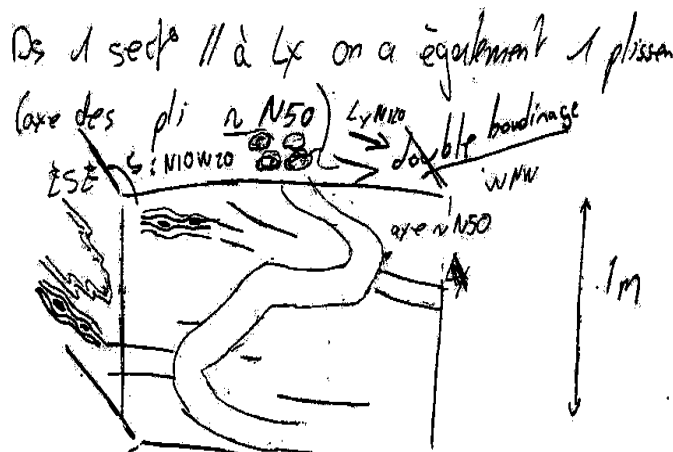 Ds 1 sect° // à Lx on a également 1 plissem
(axe des pli ~ N50)
Lx N120
double boudinage
ESE
S : N10W20
WNW
axe ~ N50
1m